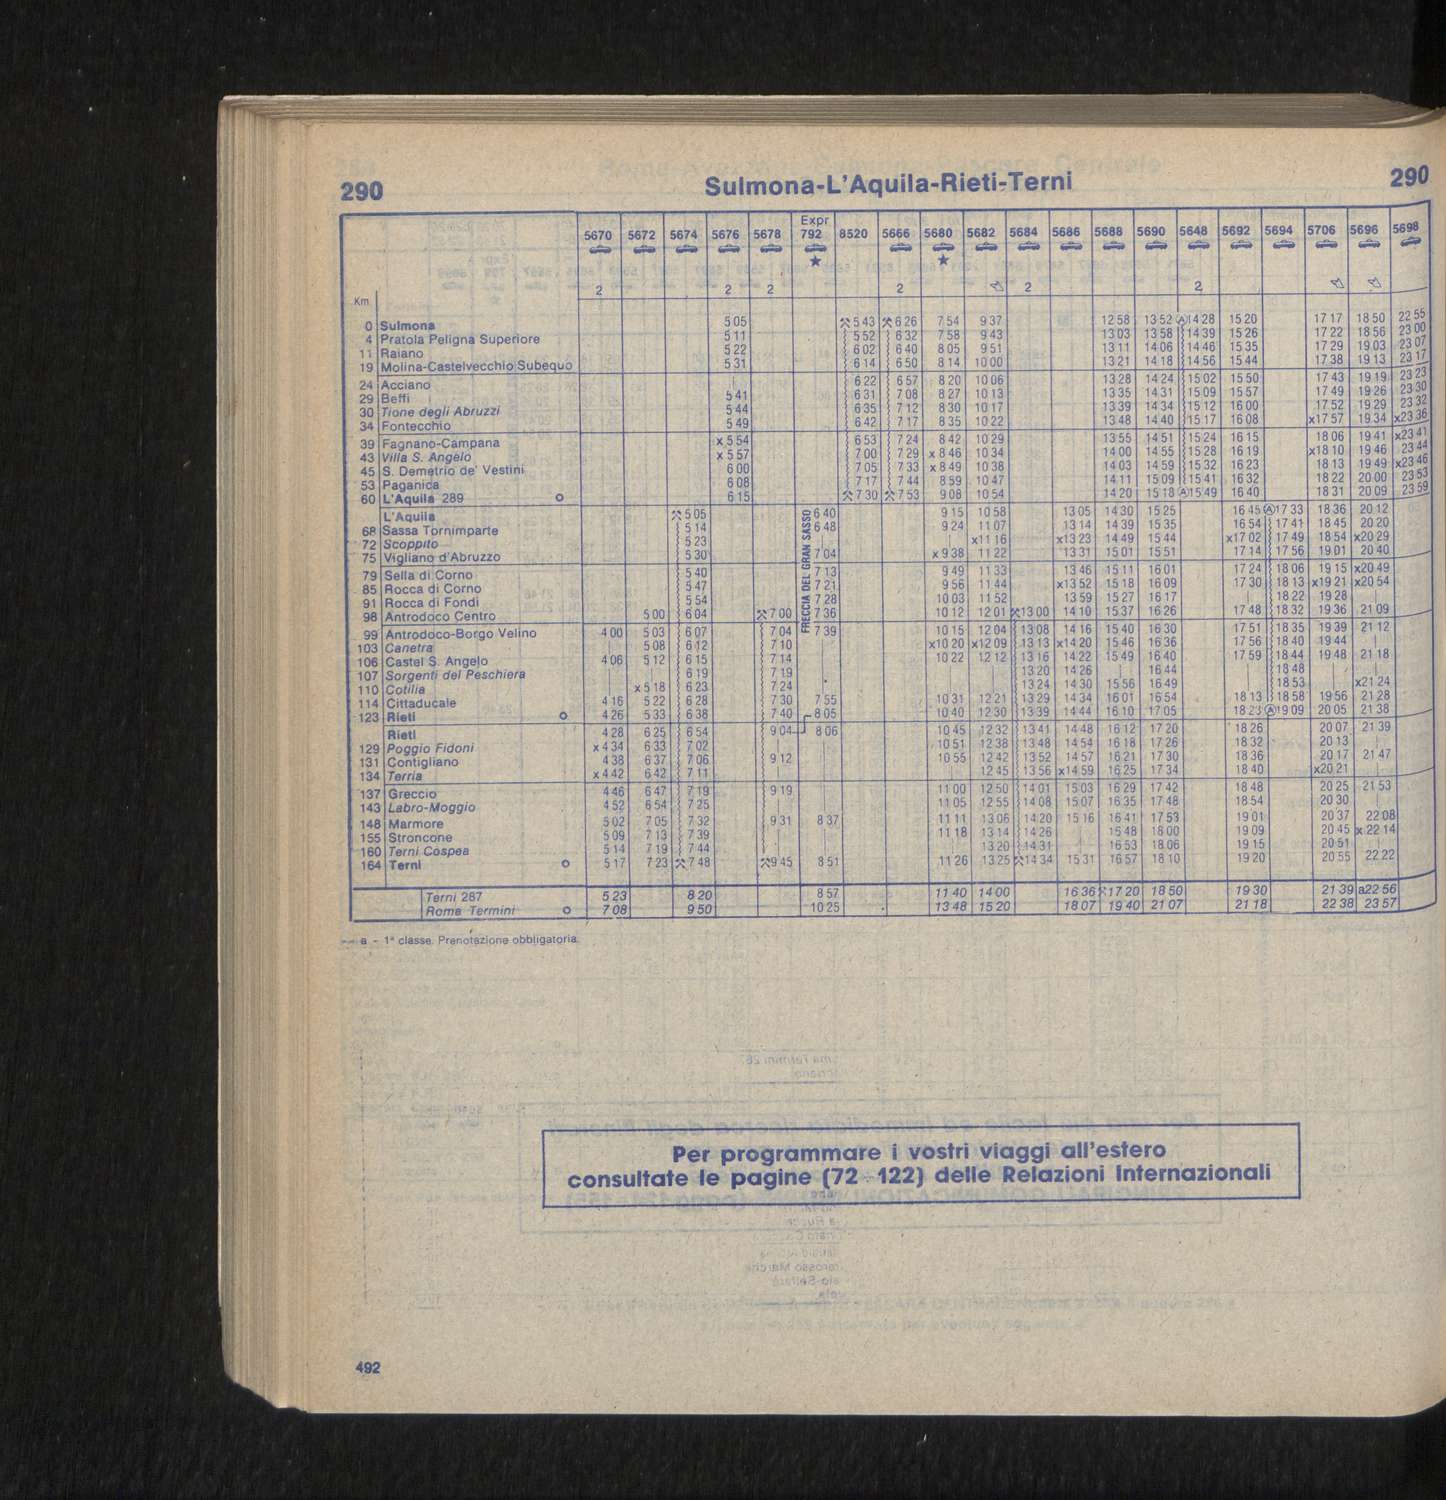 290 Sulmona-L'Aquila-Rieti-Terni 290
Expr
5670 5672 5674 5676 5678 792 8520 5666 5680 5682 5684 5686 5688 5690 5648 5692 5694 5706 5696 5698
★ ★
2 2 2 2 2 2
Km
0 Sulmona 5 05 5 43 6 26 7 54 9 37 12 58 13 52 Ⓐ14 28 15 20 17 17 18 50 22 55
4 Pratola Peligna Superiore 5 11 5 52 6 32 7 58 9 43 13 03 13 58 14 39 15 26 17 22 18 56 23 00
11 Raiano 5 22 6 02 6 40 8 05 9 51 13 11 14 06 14 46 15 35 17 29 19 03 23 07
19 Molina-Castelvecchio Subequo 5 31 6 14 6 50 8 14 10 00 13 21 14 18 14 56 15 44 17 38 19 13 23 17
24 Acciano | 6 22 6 57 8 20 10 06 13 28 14 24 15 02 15 50 17 43 19 19 23 23
29 Beffi 5 41 6 31 7 08 8 27 10 13 13 35 14 31 15 09 15 57 17 49 19 26 23 30
30 Tione degli Abruzzi 5 44 6 35 7 12 8 30 10 17 13 39 14 34 15 12 16 00 17 52 19 29 23 32
34 Fontecchio 5 49 6 42 7 17 8 35 10 22 13 48 14 40 15 17 16 08 x17 57 19 34 x23 36
39 Fagnano-Campana x 5 54 6 53 7 24 8 42 10 29 13 55 14 51 15 24 16 15 18 06 19 41 x23 41
43 Villa S. Angelo x 5 57 7 00 7 29 x 8 46 10 34 14 00 14 55 15 28 16 19 x18 10 19 46 23 44
45 S. Demetrio de' Vestini 6 00 7 05 7 33 x 8 49 10 38 14 03 14 59 15 32 16 23 18 13 19 49 x23 46
53 Paganica 6 08 7 17 7 44 8 59 10 47 14 11 15 09 15 41 16 32 18 22 20 00 23 53
60 L'Aquila 289 o 6 15 7 30 7 53 9 08 10 54 14 20 15 18 Ⓐ15 49 16 40 18 31 20 09 23 59
L'Aquila 5 05 6 40 9 15 10 58 13 05 14 30 15 25 16 45 Ⓐ17 33 18 36 20 12
68 Sassa Tornimparte 5 14 6 48 9 24 11 07 13 14 14 39 15 35 16 54 17 41 18 45 20 20
72 Scoppito 5 23 | | x11 16 x13 23 14 49 15 44 x17 02 17 49 18 54 x20 29
75 Vigliano d'Abruzzo 5 30 7 04 x 9 38 11 22 13 31 15 01 15 51 17 14 17 56 19 01 20 40
FRECCIA DEL GRAN SASSO
79 Sella di Corno 5 40 7 13 9 49 11 33 13 46 15 11 16 01 17 24 18 06 19 15 x20 49
85 Rocca di Corno 5 47 7 21 9 56 11 44 x13 52 15 18 16 09 17 30 18 13 x19 21 x20 54
91 Rocca di Fondi 5 54 7 28 10 03 11 52 13 59 15 27 16 17 | 18 22 19 28 |
98 Antrodoco Centro 5 00 6 04 7 00 7 36 10 12 12 01 13 00 14 10 15 37 16 26 17 48 18 32 19 36 21 09
99 Antrodoco-Borgo Velino 4 00 5 03 6 07 7 04 7 39 10 15 12 04 13 08 14 16 15 40 16 30 17 51 18 35 19 39 21 12
103 Canetra | 5 08 6 12 7 10 | x10 20 x12 09 13 13 x14 20 15 46 16 36 17 56 18 40 19 44 |
106 Castel S. Angelo 4 06 5 12 6 15 7 14 | 10 22 12 12 13 16 14 22 15 49 16 40 17 59 18 44 19 48 21 18
107 Sorgenti del Peschiera | | 6 19 7 19 | | | 13 20 14 26 | 16 44 | 18 48 | |
110 Cotilia | x 5 18 6 23 7 24 | | | 13 24 14 30 15 56 16 49 | 18 53 | x21 24
114 Cittaducale 4 16 5 22 6 28 7 30 7 55 10 31 12 21 13 29 14 34 16 01 16 54 18 13 18 58 19 56 21 28
123 Rieti o 4 26 5 33 6 38 7 40 8 05 10 40 12 30 13 39 14 44 16 10 17 05 18 23 Ⓐ19 09 20 05 21 38
Rieti 4 28 6 25 6 54 9 04 8 06 10 45 12 32 13 41 14 48 16 12 17 20 18 26 20 07 21 39
129 Poggio Fidoni x 4 34 6 33 7 02 | | 10 51 12 38 13 48 14 54 16 18 17 26 18 32 20 13 |
131 Contigliano 4 38 6 37 7 06 9 12 | 10 55 12 42 13 52 14 57 16 21 17 30 18 36 20 17 21 47
134 Terria x 4 42 6 42 7 11 | | | 12 45 13 56 x14 59 16 25 17 34 18 40 x20 21 |
137 Greccio 4 46 6 47 7 19 9 19 | 11 00 12 50 14 01 15 03 16 29 17 42 18 48 20 25 21 53
143 Labro-Moggio 4 52 6 54 7 25 | | 11 05 12 55 14 08 15 07 16 35 17 48 18 54 20 30 |
148 Marmore 5 02 7 05 7 32 9 31 8 37 11 11 13 06 14 20 15 16 16 41 17 53 19 01 20 37 22 08
155 Stroncone 5 09 7 13 7 39 | | 11 18 13 14 14 26 | 15 48 18 00 19 09 20 45 x 22 14
160 Terni Cospea 5 14 7 19 7 44 | | | 13 20 14 31 | 16 53 18 06 19 15 20 51 |
164 Terni o 5 17 7 23 7 48 9 45 8 51 11 26 13 25 14 34 15 31 16 57 18 10 19 20 20 55 22 22
Terni 287 5 23 8 20 8 57 11 40 14 00 16 36 17 20 18 50 19 30 21 39 a22 56
Roma Termini o 7 08 9 50 10 25 13 48 15 20 18 07 19 40 21 07 21 18 22 38 23 57
a - 1ª classe. Prenotazione obbligatoria.
Per programmare i vostri viaggi all'estero
consultate le pagine (72 ÷ 122) delle Relazioni Internazionali
492